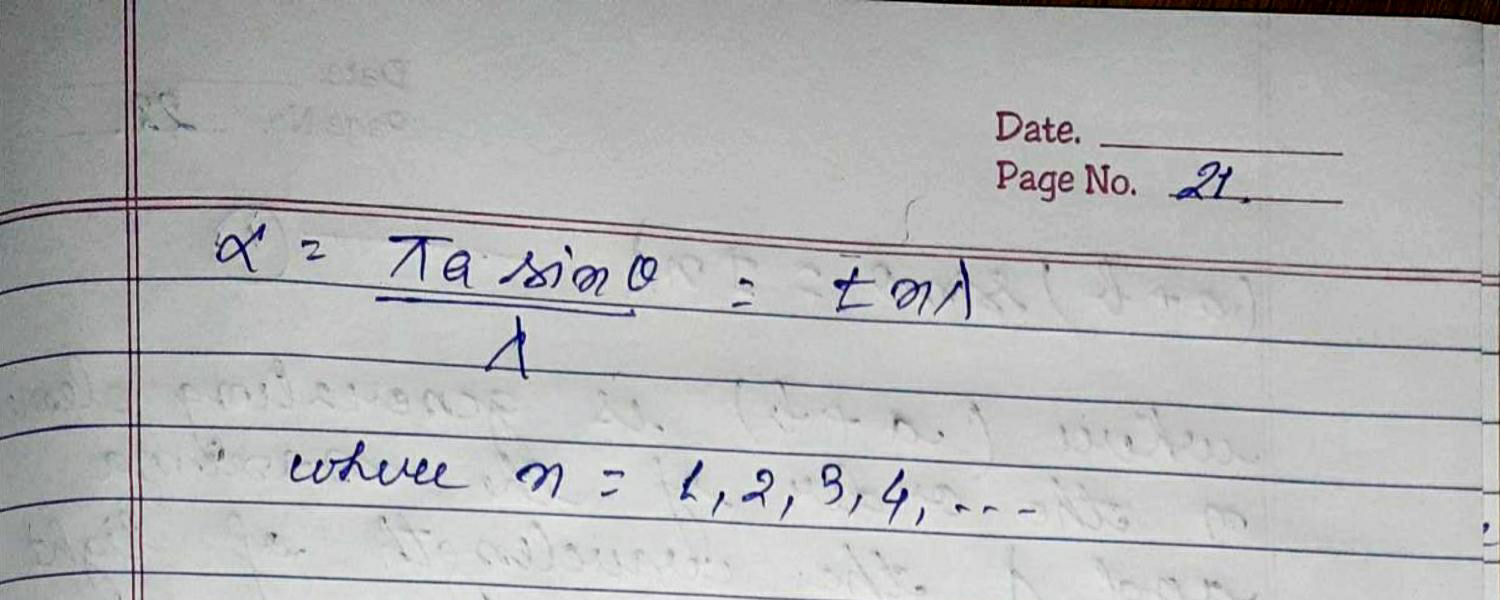 Date.
Page No. 21.
α = πa sinθ / λ = ±nλ
where n = 1, 2, 3, 4, ...